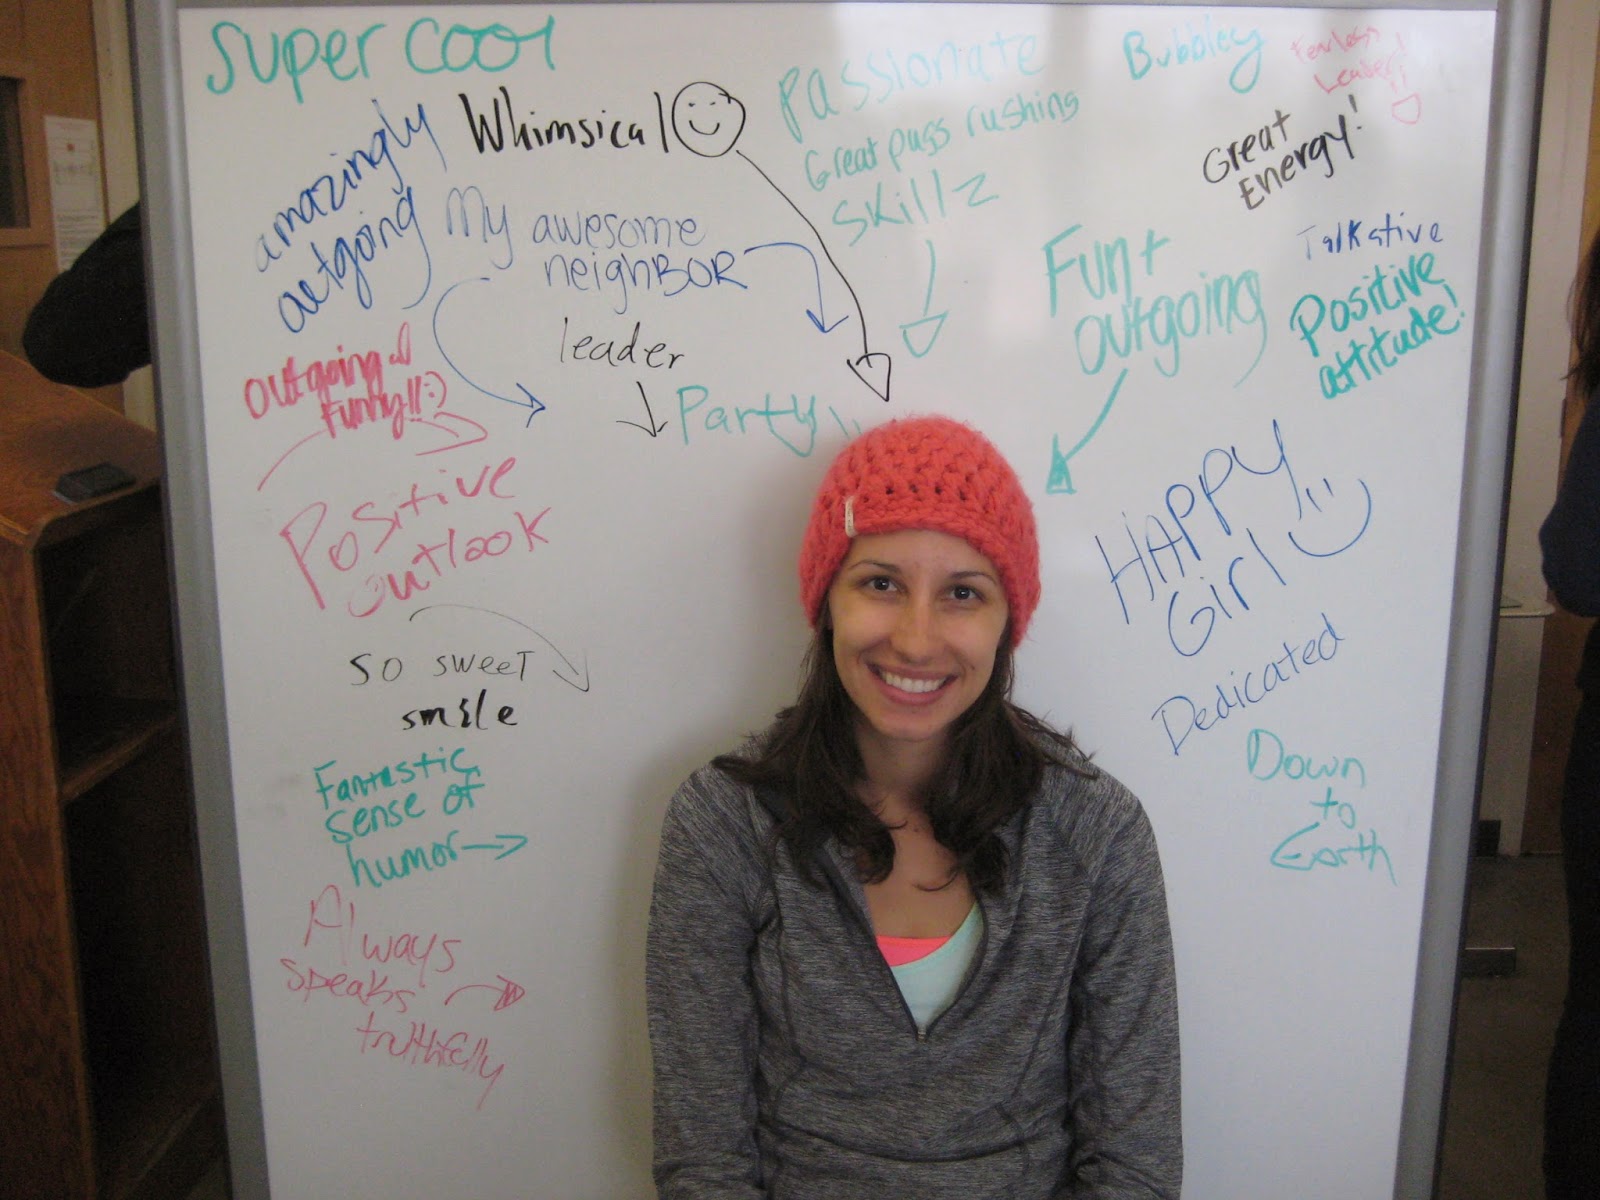 Super cool
Whimsical
amazingly
outgoing
My awesome
neighBOR
Passionate
Great pass rushing
skillz
Bubbley
Fearless
Leader!
Great
Energy!
Talkative
Positive
attitude!
Fun +
outgoing
leader
Party
outgoing &
Funny!! :)
Positive
outlook
so sweet
smile
Fantastic
sense of
humor
Always
speaks
truthfully
HAPPY
Girl
Dedicated
Down
to
Earth